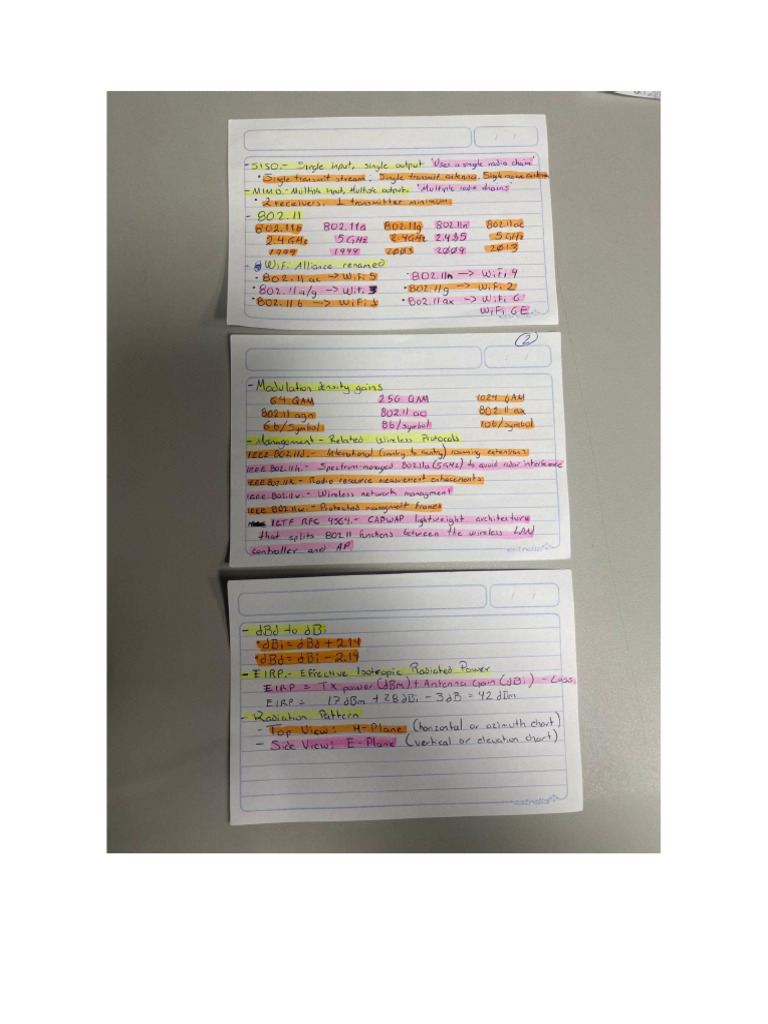 - SISO.- Single input, single output "Uses a single radio chain"
• Single transmit stream. Single transmit antenna. Single
- MIMO.- Multiple input, Multiple output. "Multiple radio chains"
• 2 receivers. 1 transmitter minimum
- 802.11
802.11b 802.11a 802.11g 802.11n 802.11ac
2.4 GHz 5 GHz 2.4GHz 2.4&5 5 GHz
1999 1999 2003 2009 2013
- WiFi Alliance renamed
• 802.11 ac -> WiFi 5 • 802.11n -> WiFi 4
• 802.11a/g -> WiFi 3 • 802.11g -> WiFi 2
• 802.11 b -> WiFi 1 • 802.11 ax -> WiFi 6
WiFi 6E
2
- Modulation density gains
64 QAM 256 QAM 1024 QAM
802.11 agn 802.11 ac 802.11 ax
6b/symbol 8b/symbol 10b/symbol
- Management - Related Wireless Protocols
IEEE 802.11d.- International (country to country) roaming extensions
IEEE 802.11h.- Spectrum-managed 802.11a (5GHz) to avoid radar interference
IEEE 802.11k.- Radio resource measurement enhacements
IEEE 802.11v.- Wireless network managment
IEEE 802.11w.- Protected managment frames
IETF RFC 4564.- CAPWAP lightweight architecture
that splits 802.11 functions between the wireless LAN
controller and AP
estrella
- dBd to dBi
• dBi = dBd + 2.14
• dBd = dBi - 2.14
- EIRP.- Effective Isotropic Radiated Power
EIRP = TX power (dBm) + Antenna Gain (dBi) - Loss
EIRP = 17 dBm + 28 dBi - 3 dB = 42 dBm
- Radiation Pattern
- Top View: H-Plane (horizontal or azimuth chart)
- Side View: E-Plane (vertical or elevation chart)
estrella